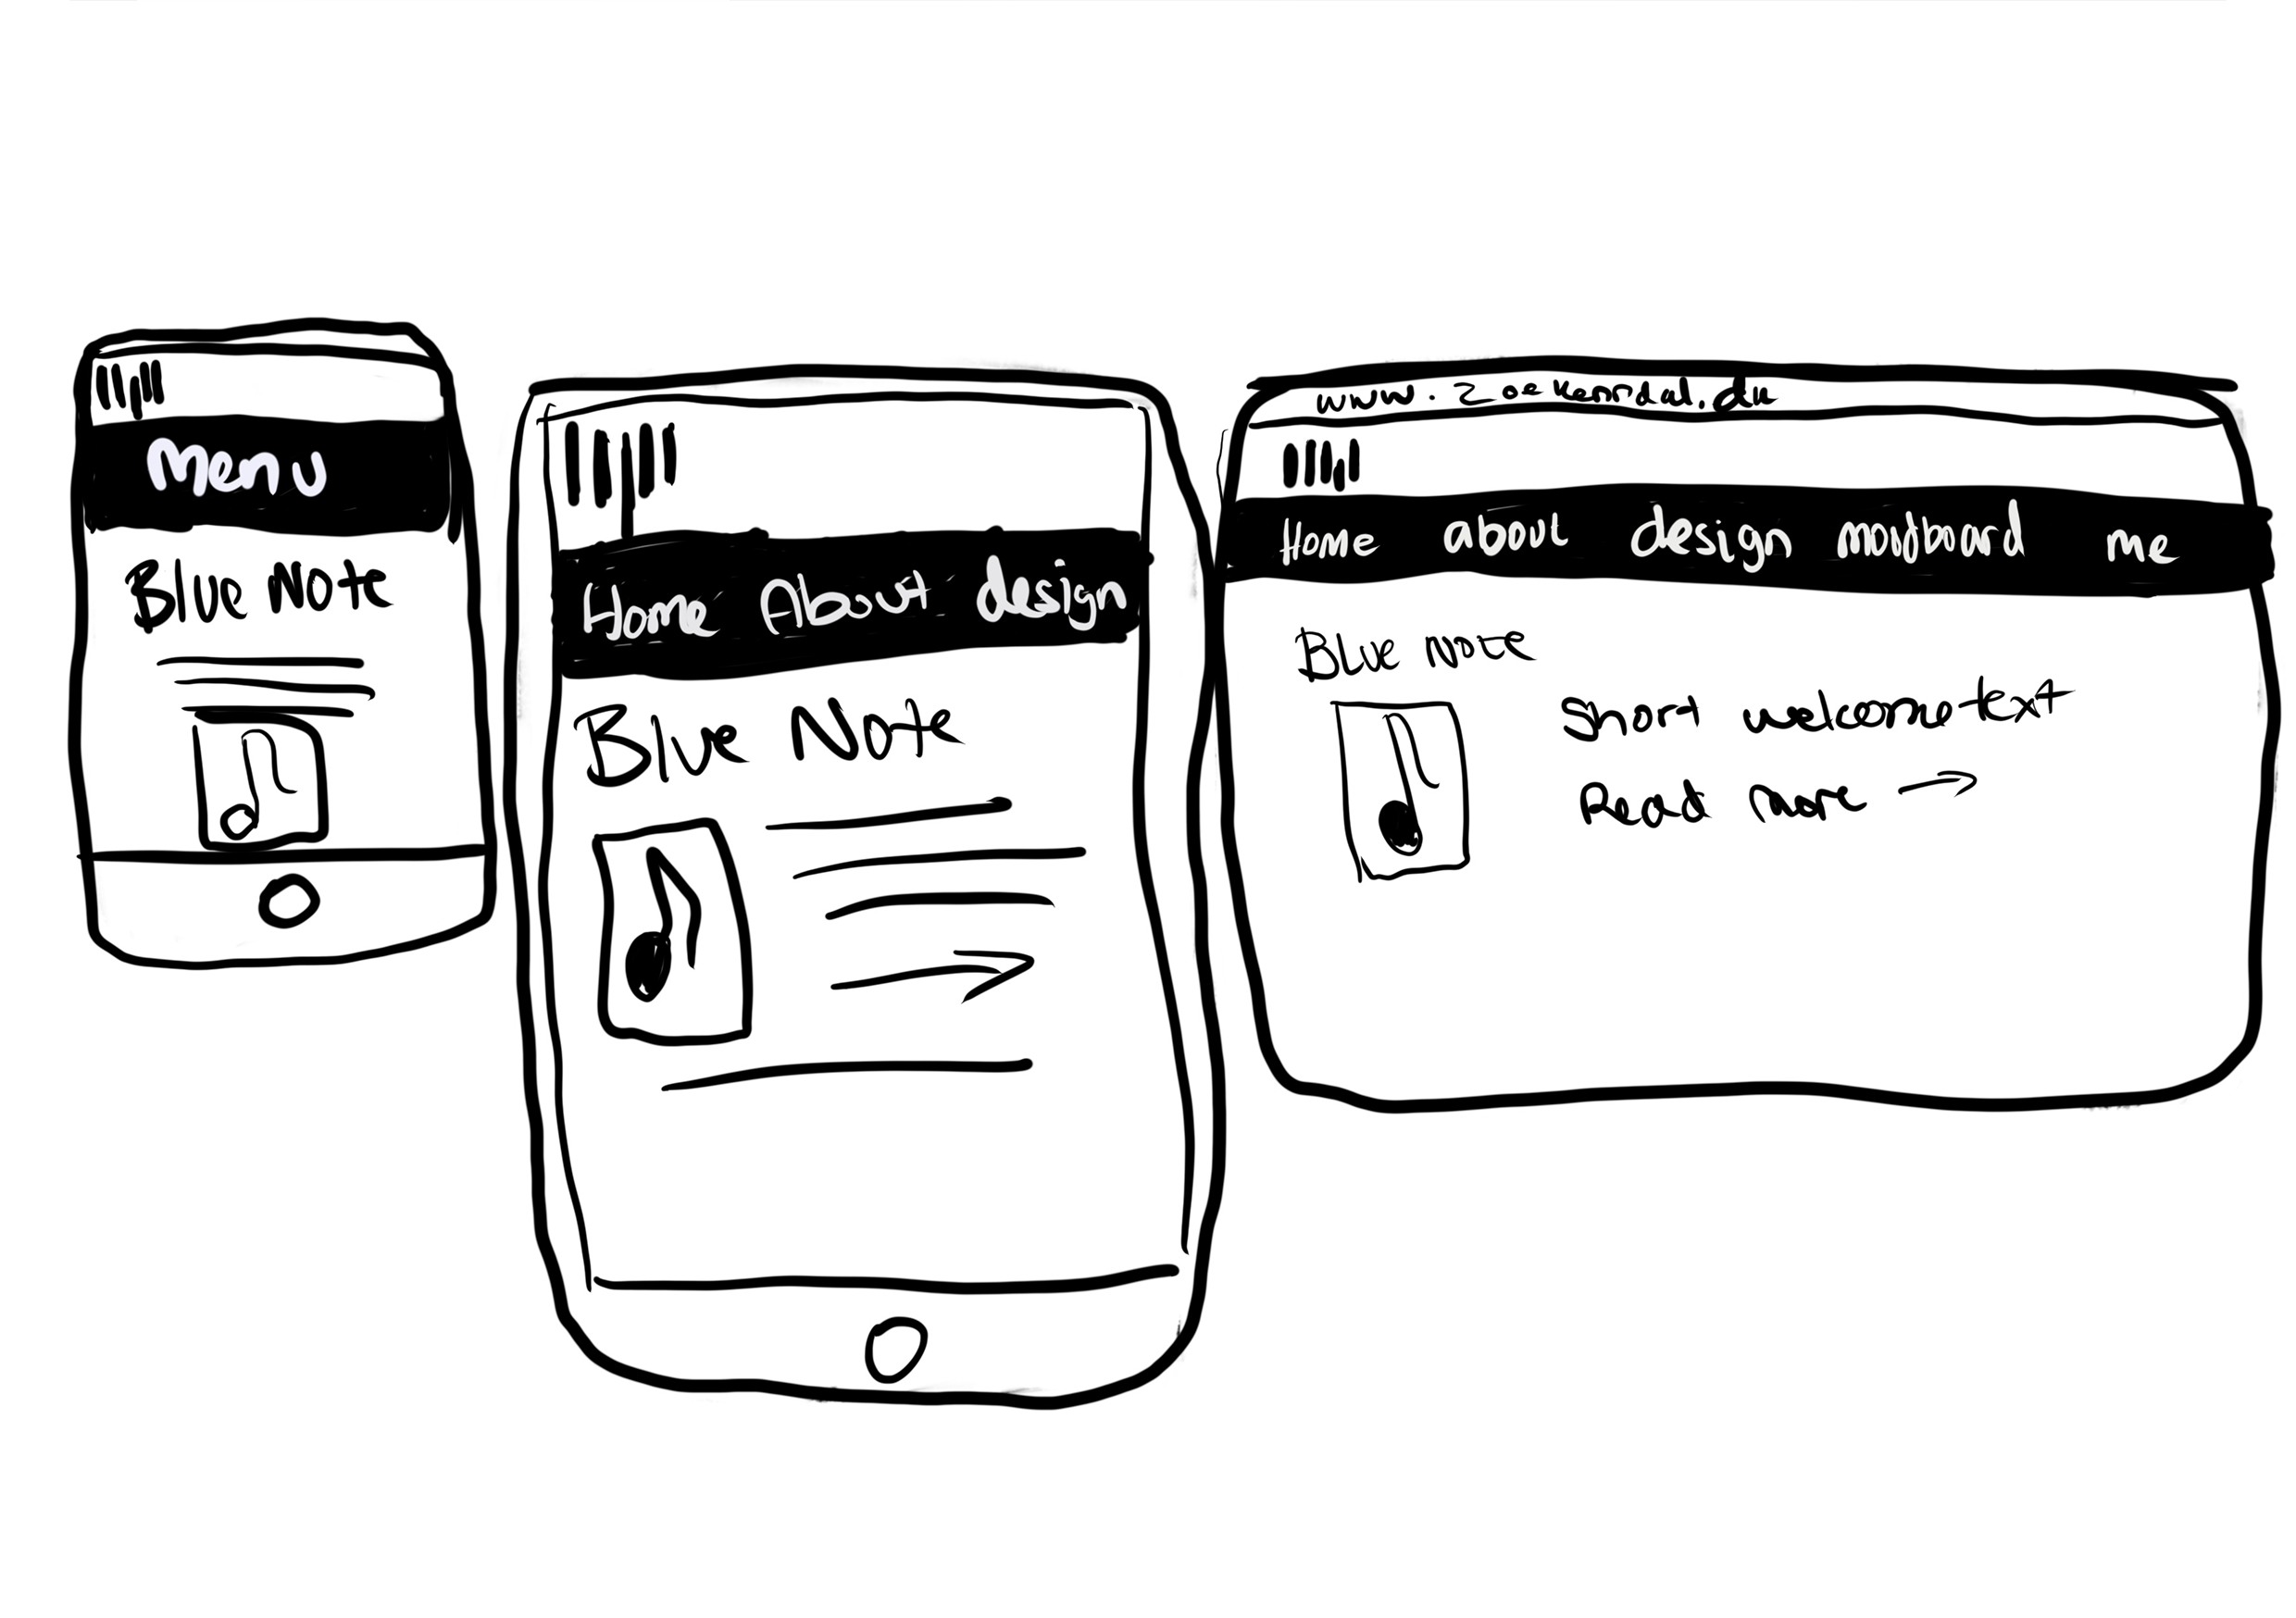 Menu
Blue Note
Home About design
Blue Note
Home about design moodboard me
Blue Note
Short welcome text
Read more →